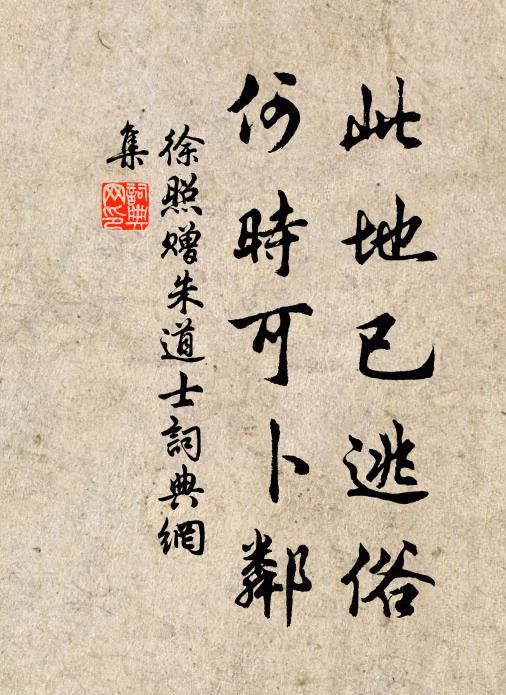 此地已逃俗
何時可卜鄰
徐照贈朱道士詞典網
集
詞典網印